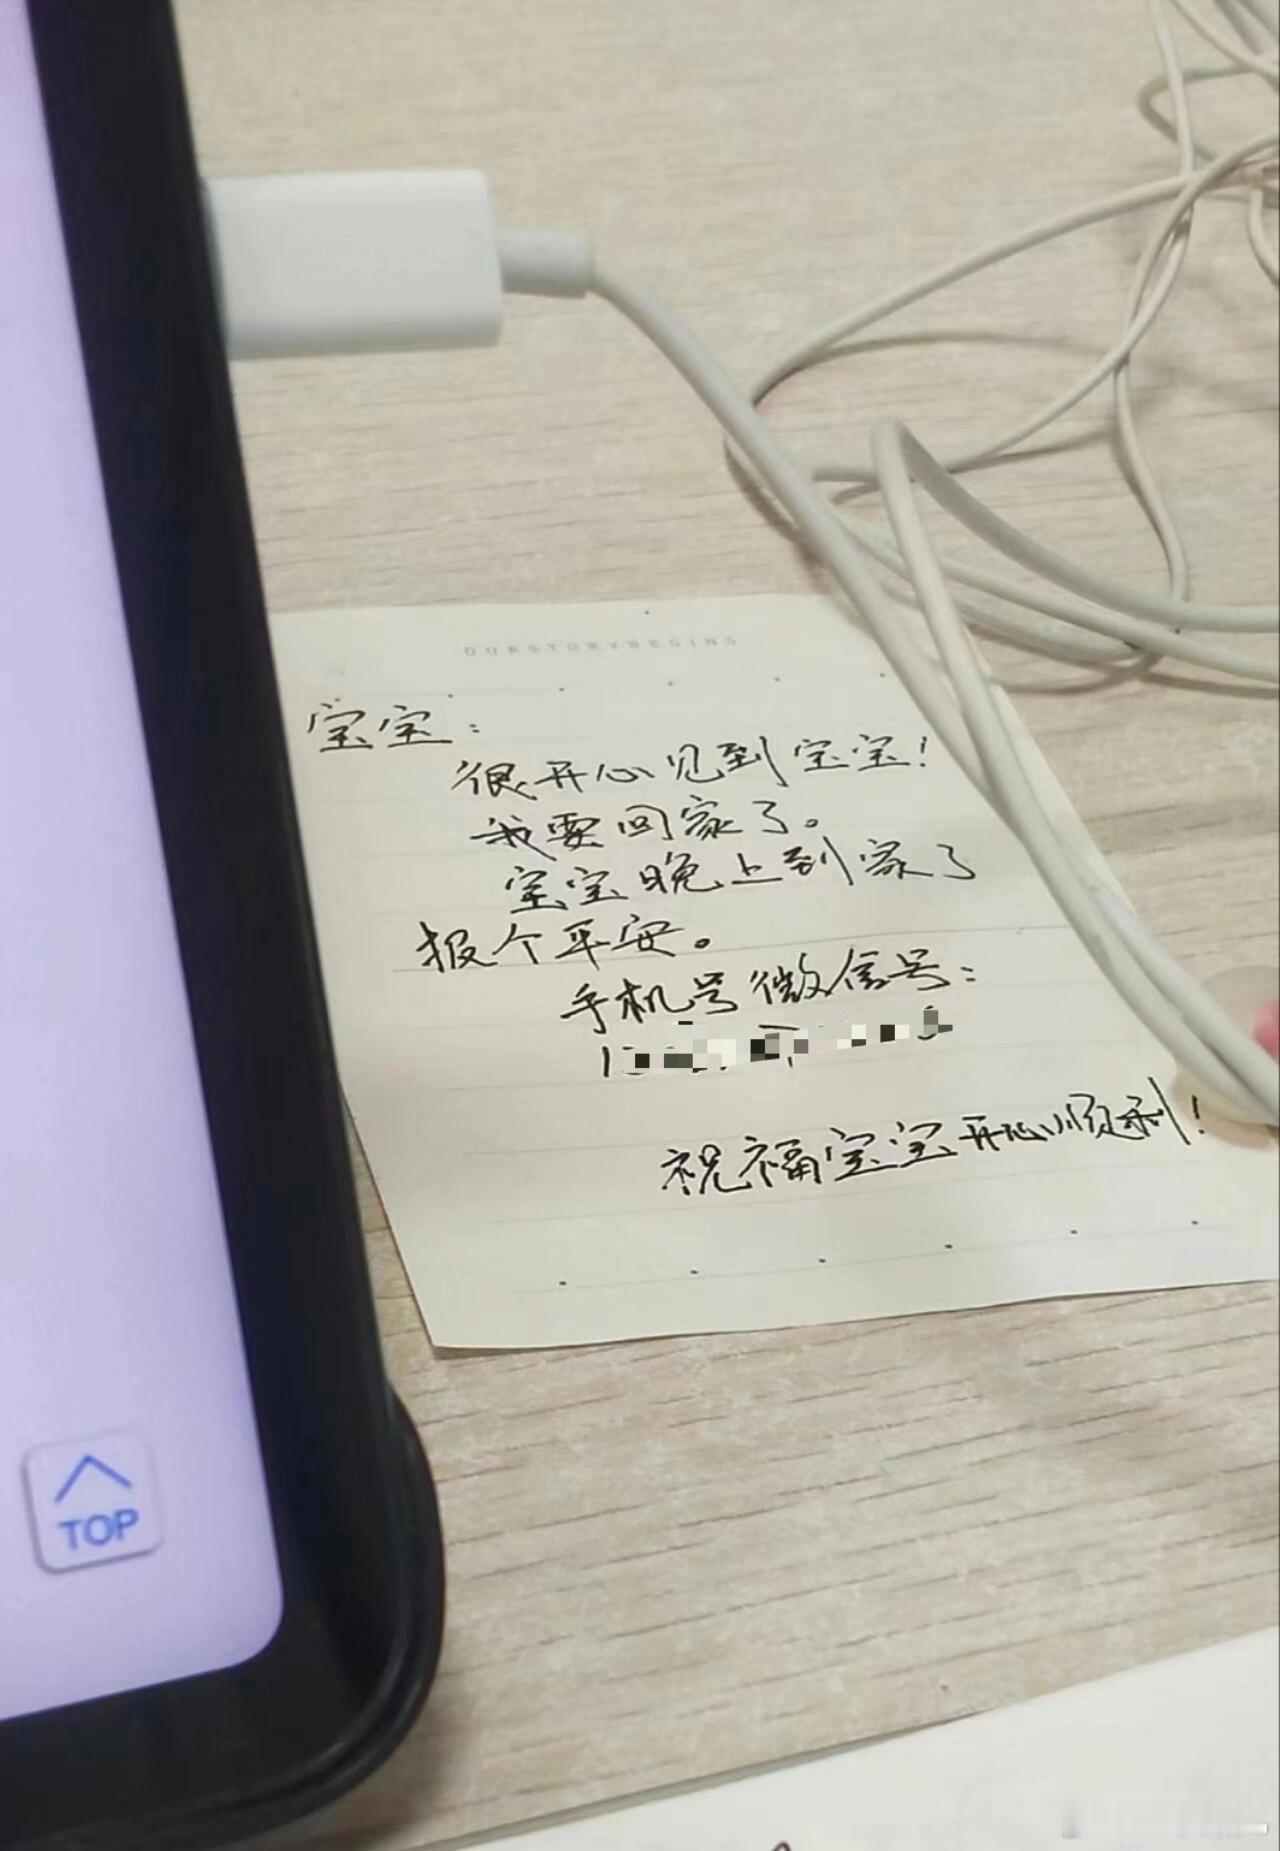 OURSTORYBEGINS
宝宝：
很开心见到宝宝！
我要回家了。
宝宝晚上到家了
报个平安。
手机号微信号：
祝福宝宝开心顺利！
TOP